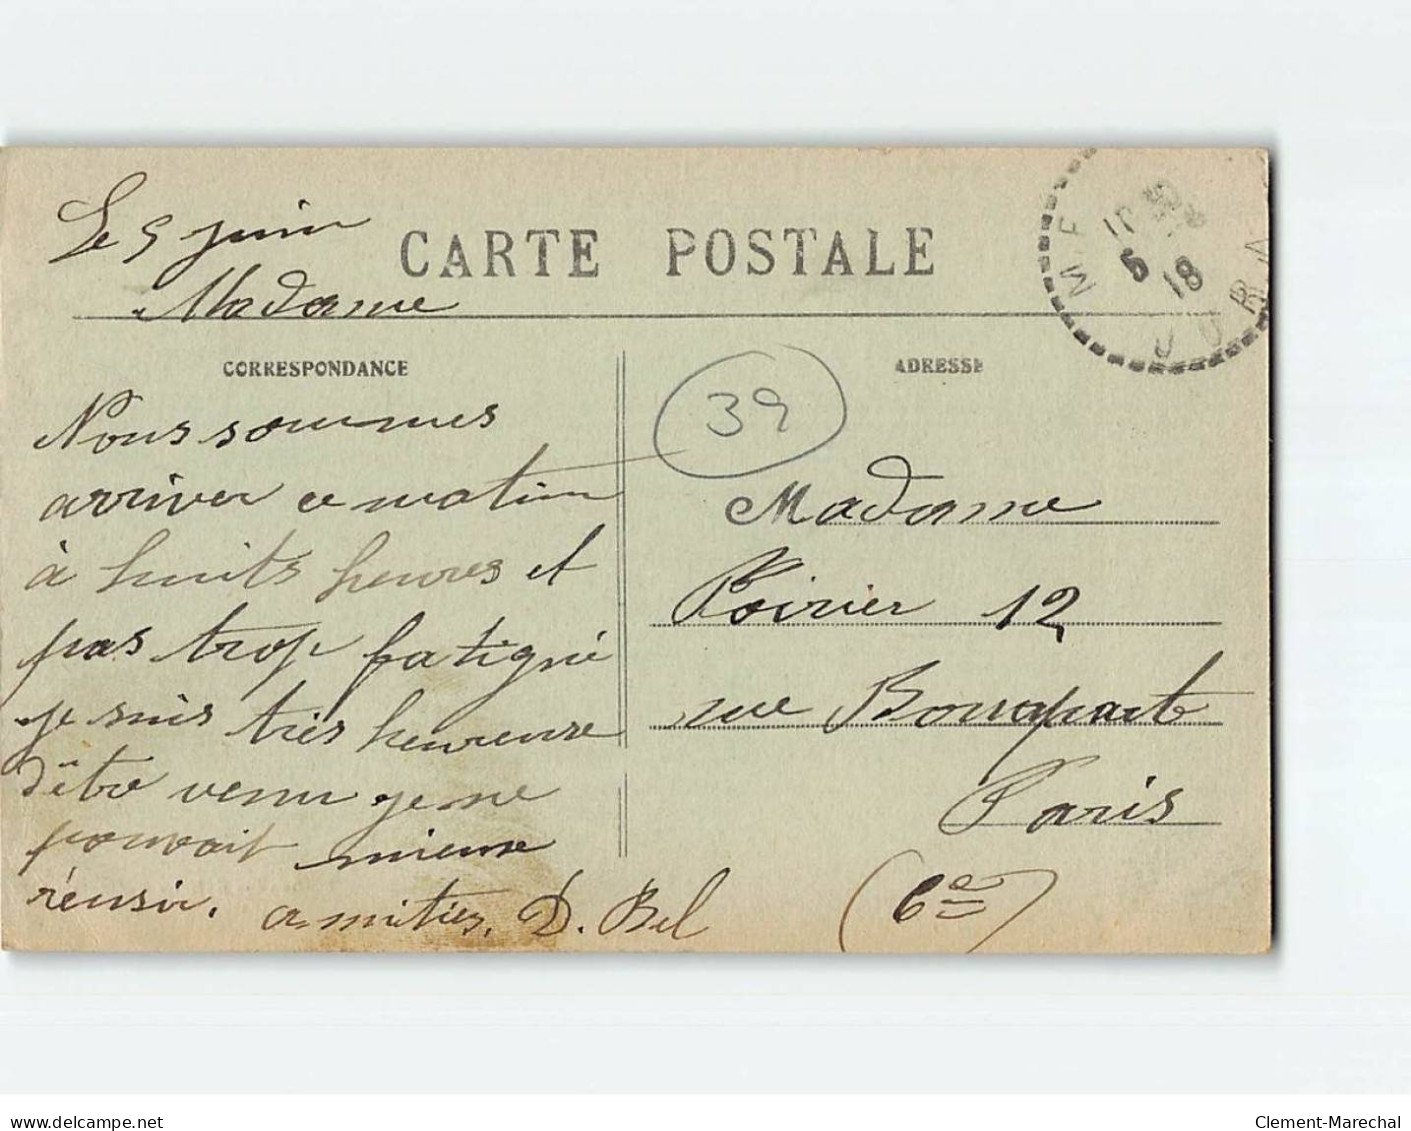 Le 5 juin
CARTE POSTALE
Madame
CORRESPONDANCE
Nous sommes
arriver ce matin
à huits heures et
pas trop fatigné
je suis très heureuse
d'être venu je ne
pouvait mieux
réussir. amitiés, D. Bel
ADRESSE
39
Madame
Poirier 12
rue Bonapart
Paris
(6e)
5
18
JURA
delcampe.net
Clement-Marechal